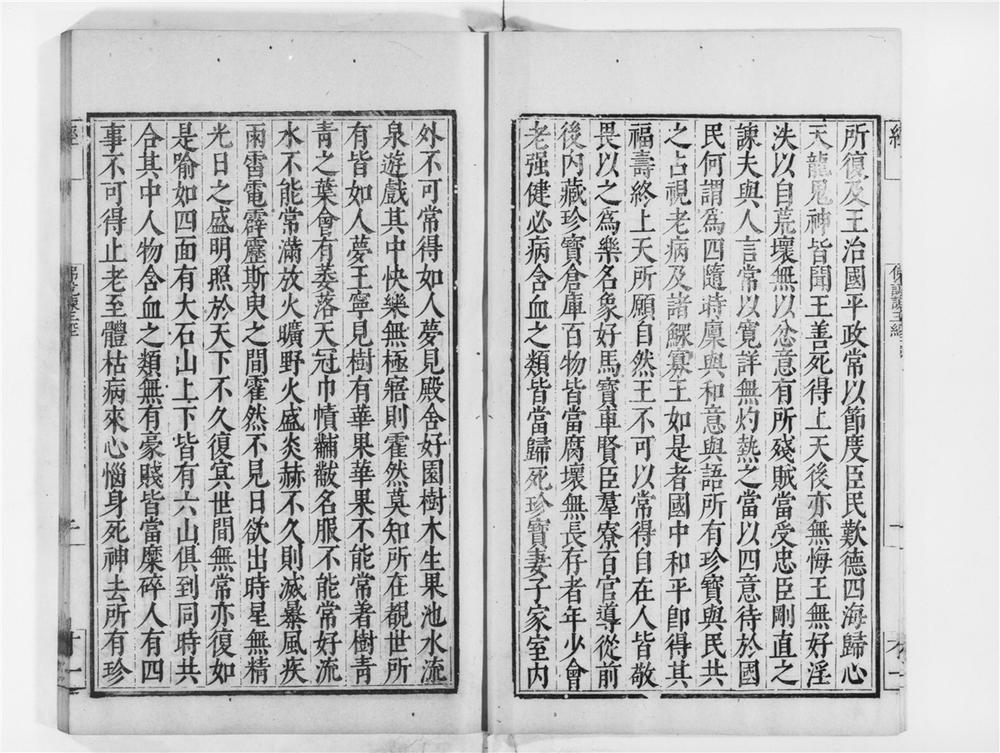 所復及王治國平政常以節度臣民歎德四海歸心
天龍鬼神皆聞王善死得上天後亦無悔王無好淫
泆以自荒壞無以忿意有所殘賊當受忠臣剛直之
諫夫與人言常以寬詳無灼熱之當以四意待於國
民何謂為四隨時廩與和意與語所有珍寶與民共
之占視老病及諸鰥寡王如是者國中和平即得其
福壽終上天所願自然王不可以常得自在人皆敬
畏以之為樂名象好馬寶車賢臣羣寮百官導從前
後內藏珍寶倉庫百物皆當腐壞無長存者年少會
老强健必病含血之類皆當歸死珍寶妻子家室內
外不可常得如人夢見殿舍好園樹木生果池水流
泉遊戲其中快樂無極寤則霍然莫知所在覩世所
有皆如人夢王寧見樹有華果華果不能常着樹青
青之葉會有萎落天冠巾幘黼黻名服不能常好流
水不能常滿放火曠野火盛炎赫不久則滅暴風疾
雨雷電霹靂斯臾之間霍然不見日欲出時星無精
光日之盛明照於天下不久復㝠世間無常亦復如
是喻如四面有大石山上下皆有六山俱到同時共
合其中人物含血之類無有豪賤皆當糜碎人有四
事不可得止老至體枯病來心惱身死神去所有珍